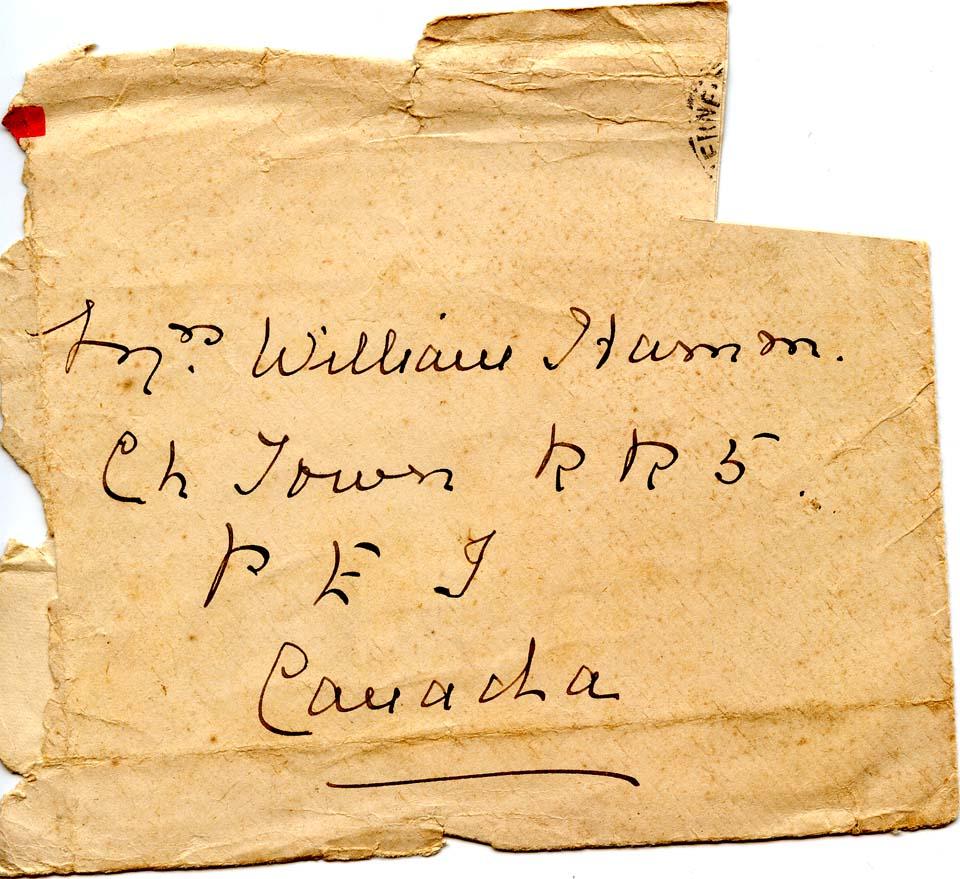 Mrs. William Hamm.
Ch Town R R 5.
P E I
Canada